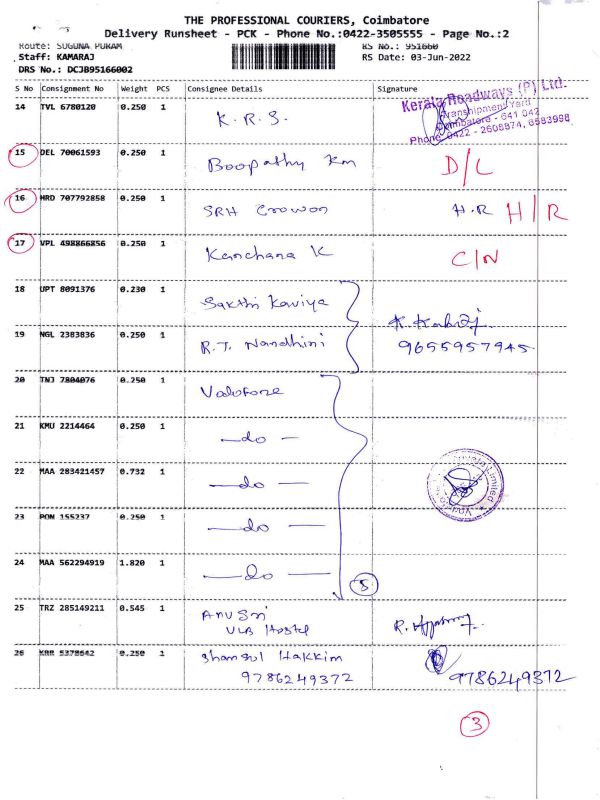 THE PROFESSIONAL COURIERS, Coimbatore
Delivery Runsheet - PCK - Phone No.:0422-3505555 - Page No.:2
Route: SUGUNA PURAM RS No.: 951660
Staff: KAMARAJ RS Date: 03-Jun-2022
DRS No.: DCJB95166002
S No Consignment No Weight PCS Consignee Details Signature
14 TVL 6780120 0.250 1 K.R.S.
Kerala Roadways (P) Ltd.
Transhipment Yard
Coimbatore - 641 042
Phone: 0422 - 2606874, 6583998
15 DEL 70061593 0.250 1 Boopathy Km D/L
16 HRD 707792858 0.250 1 SRH Crowon H.R H/R
17 VPL 498866856 0.250 1 Kanchana K C/N
18 UPT 8091376 0.230 1 Sakthi Kaviya
19 NGL 2383836 0.250 1 R.T. Nandhini 9655957945
20 TNJ 7804076 0.250 1 Vodofone
21 KMU 2214464 0.250 1 —do—
22 MAA 283421457 0.732 1 —do—
23 PON 155237 0.250 1 —do—
24 MAA 562294919 1.820 1 —do—
5
25 TRZ 285149211 0.545 1 Anu Sri
VLB Hostel
26 KRR 5378642 0.250 1 Shamsul Hakkim
9786249372 9786249372
3